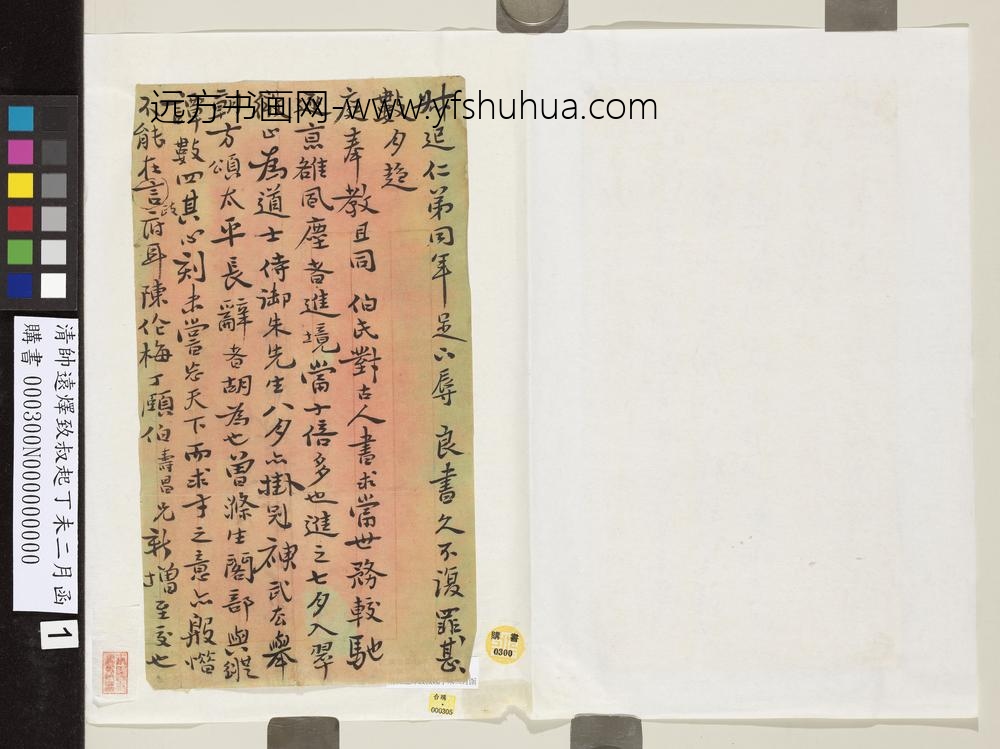 远方书画网-www.yfshuhua.com
仁弟同年足下辱 良書久不復罪甚
數夕趨
奉 教且同 伯氏對古人書求當世務較馳
雖風塵者進境當十倍多也進之七夕入翠
為道士侍御朱先生八夕亦掛別
方頌太平長辭者胡為也曾滌生閣部與
數四其心刻未嘗忘天下而求才之意亦殷
不能在言 耳陳伦梅丁頤伯壽昌兄新 至 也
清帥遠燡致叔起丁未二月函
購書 000300N000000000
1
購書
0300
台購
000305